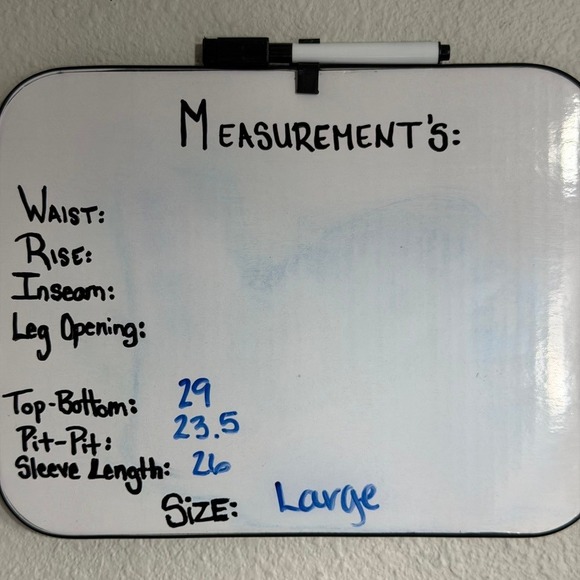 MEASUREMENT'S:
WAIST:
RISE:
Inseam:
Leg Opening:
Top-Bottom: 29
Pit-Pit: 23.5
Sleeve Length: 26
SIZE: Large